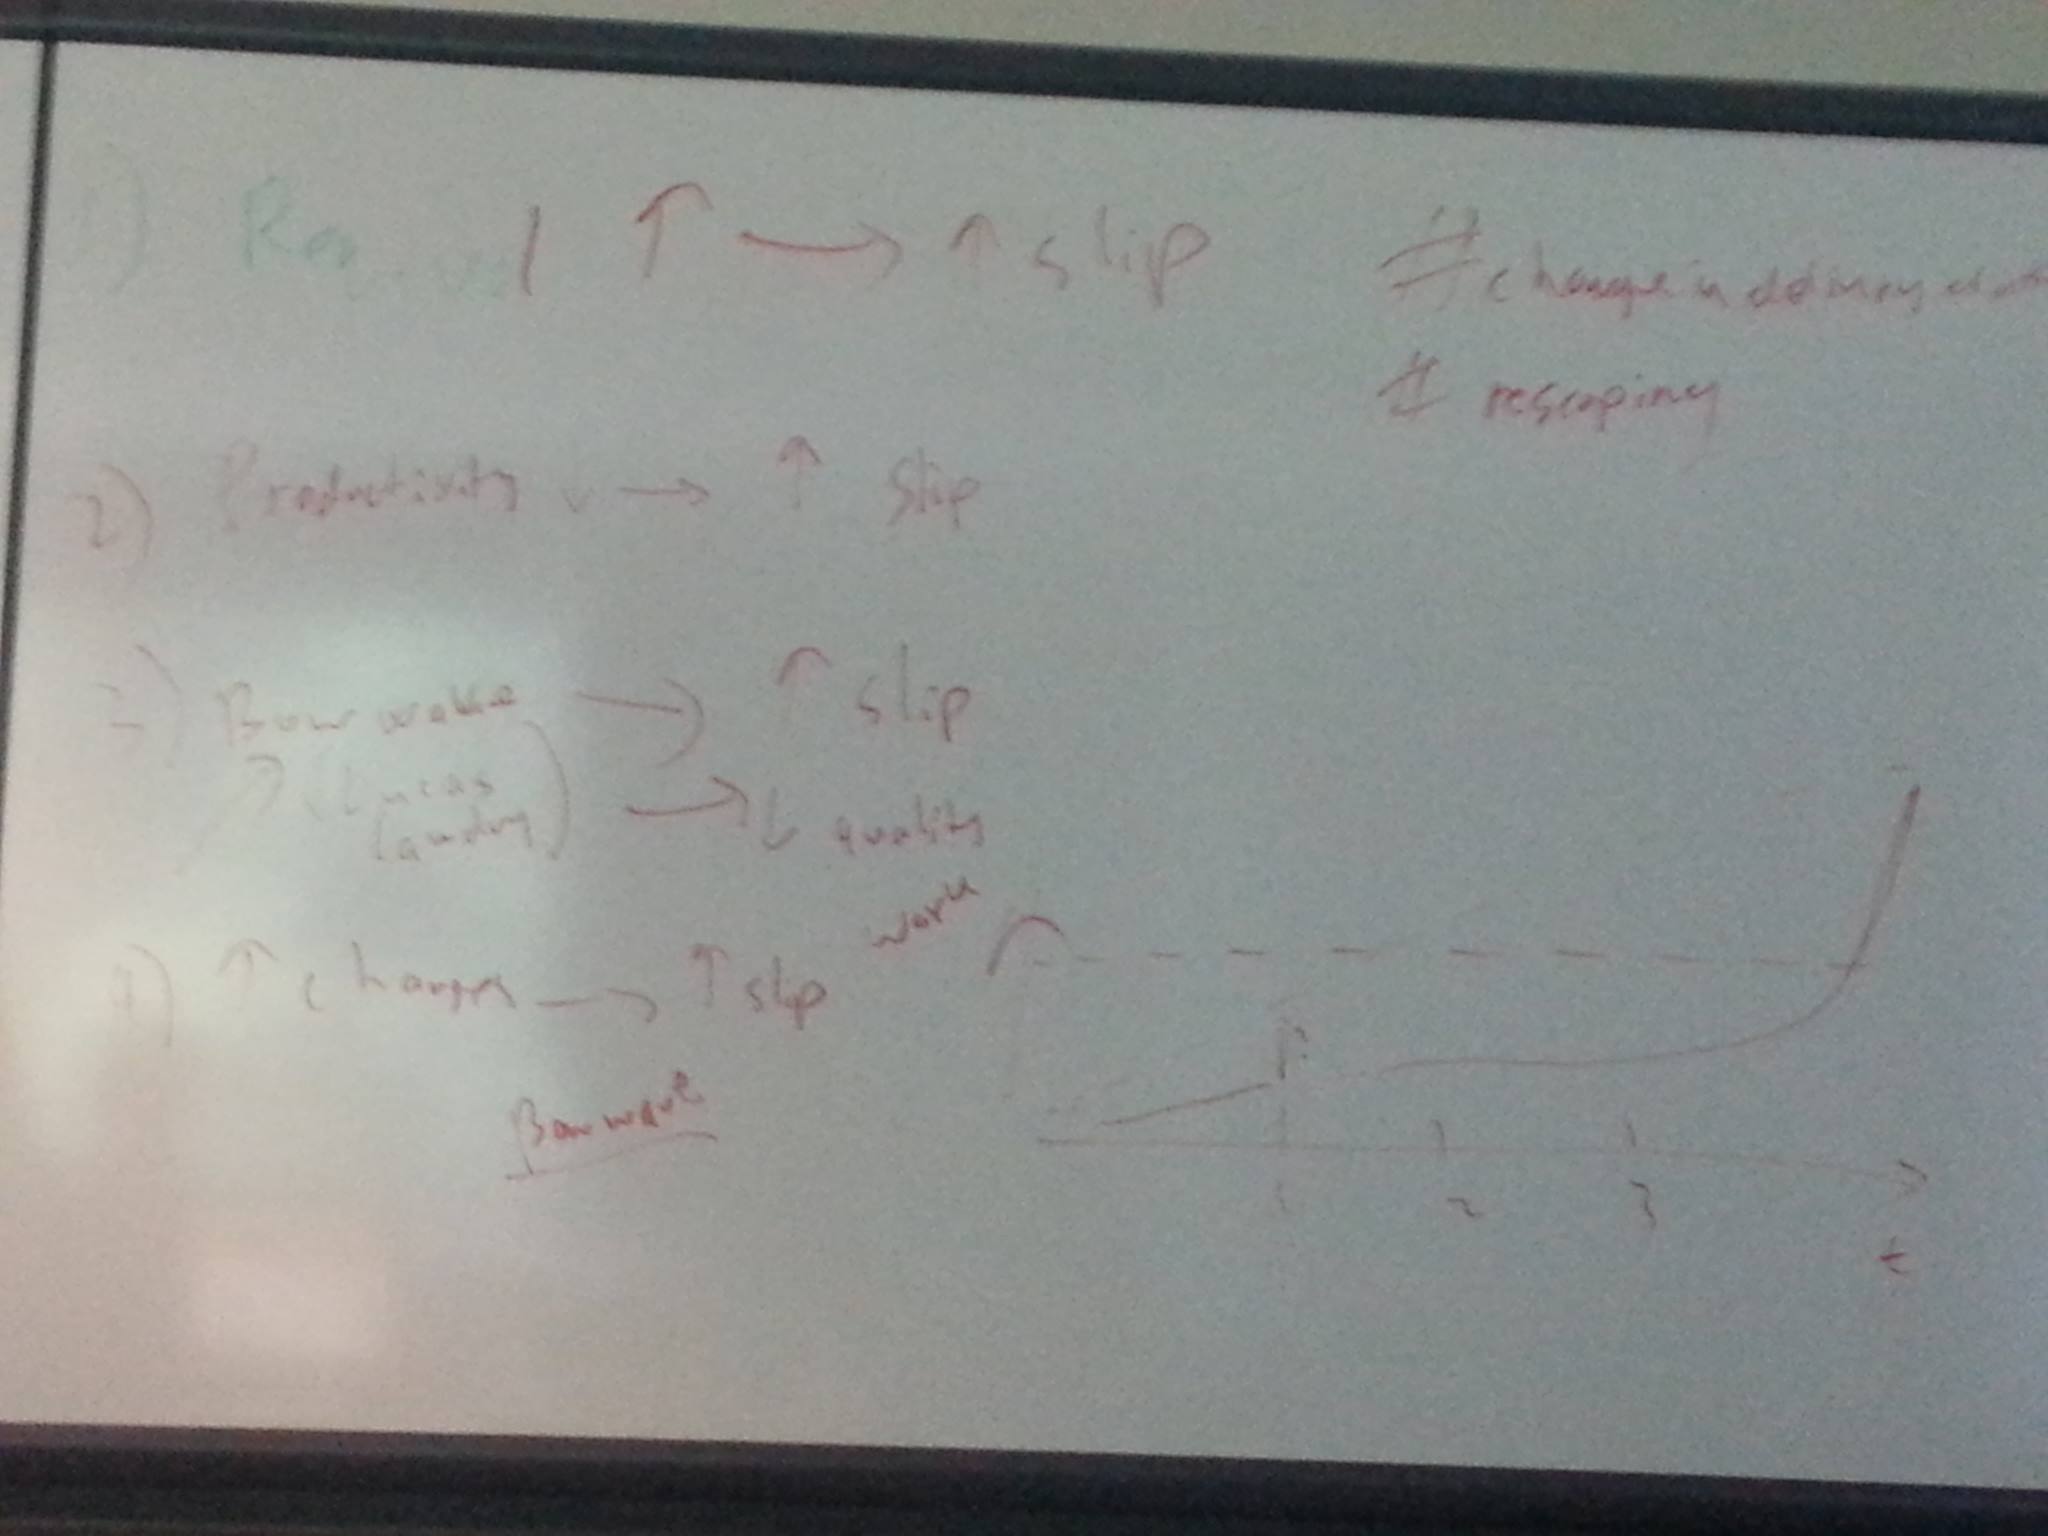 1) ↑ → ↑ slip
# change in delivery
# rescoping
2) Productivity ↓ → ↑ Slip
3) Bow wave → ↑ slip
(Lucas → ↓ quality
4) ↑ changes → ↑ slip
work
Bow wave
1 2 3
t